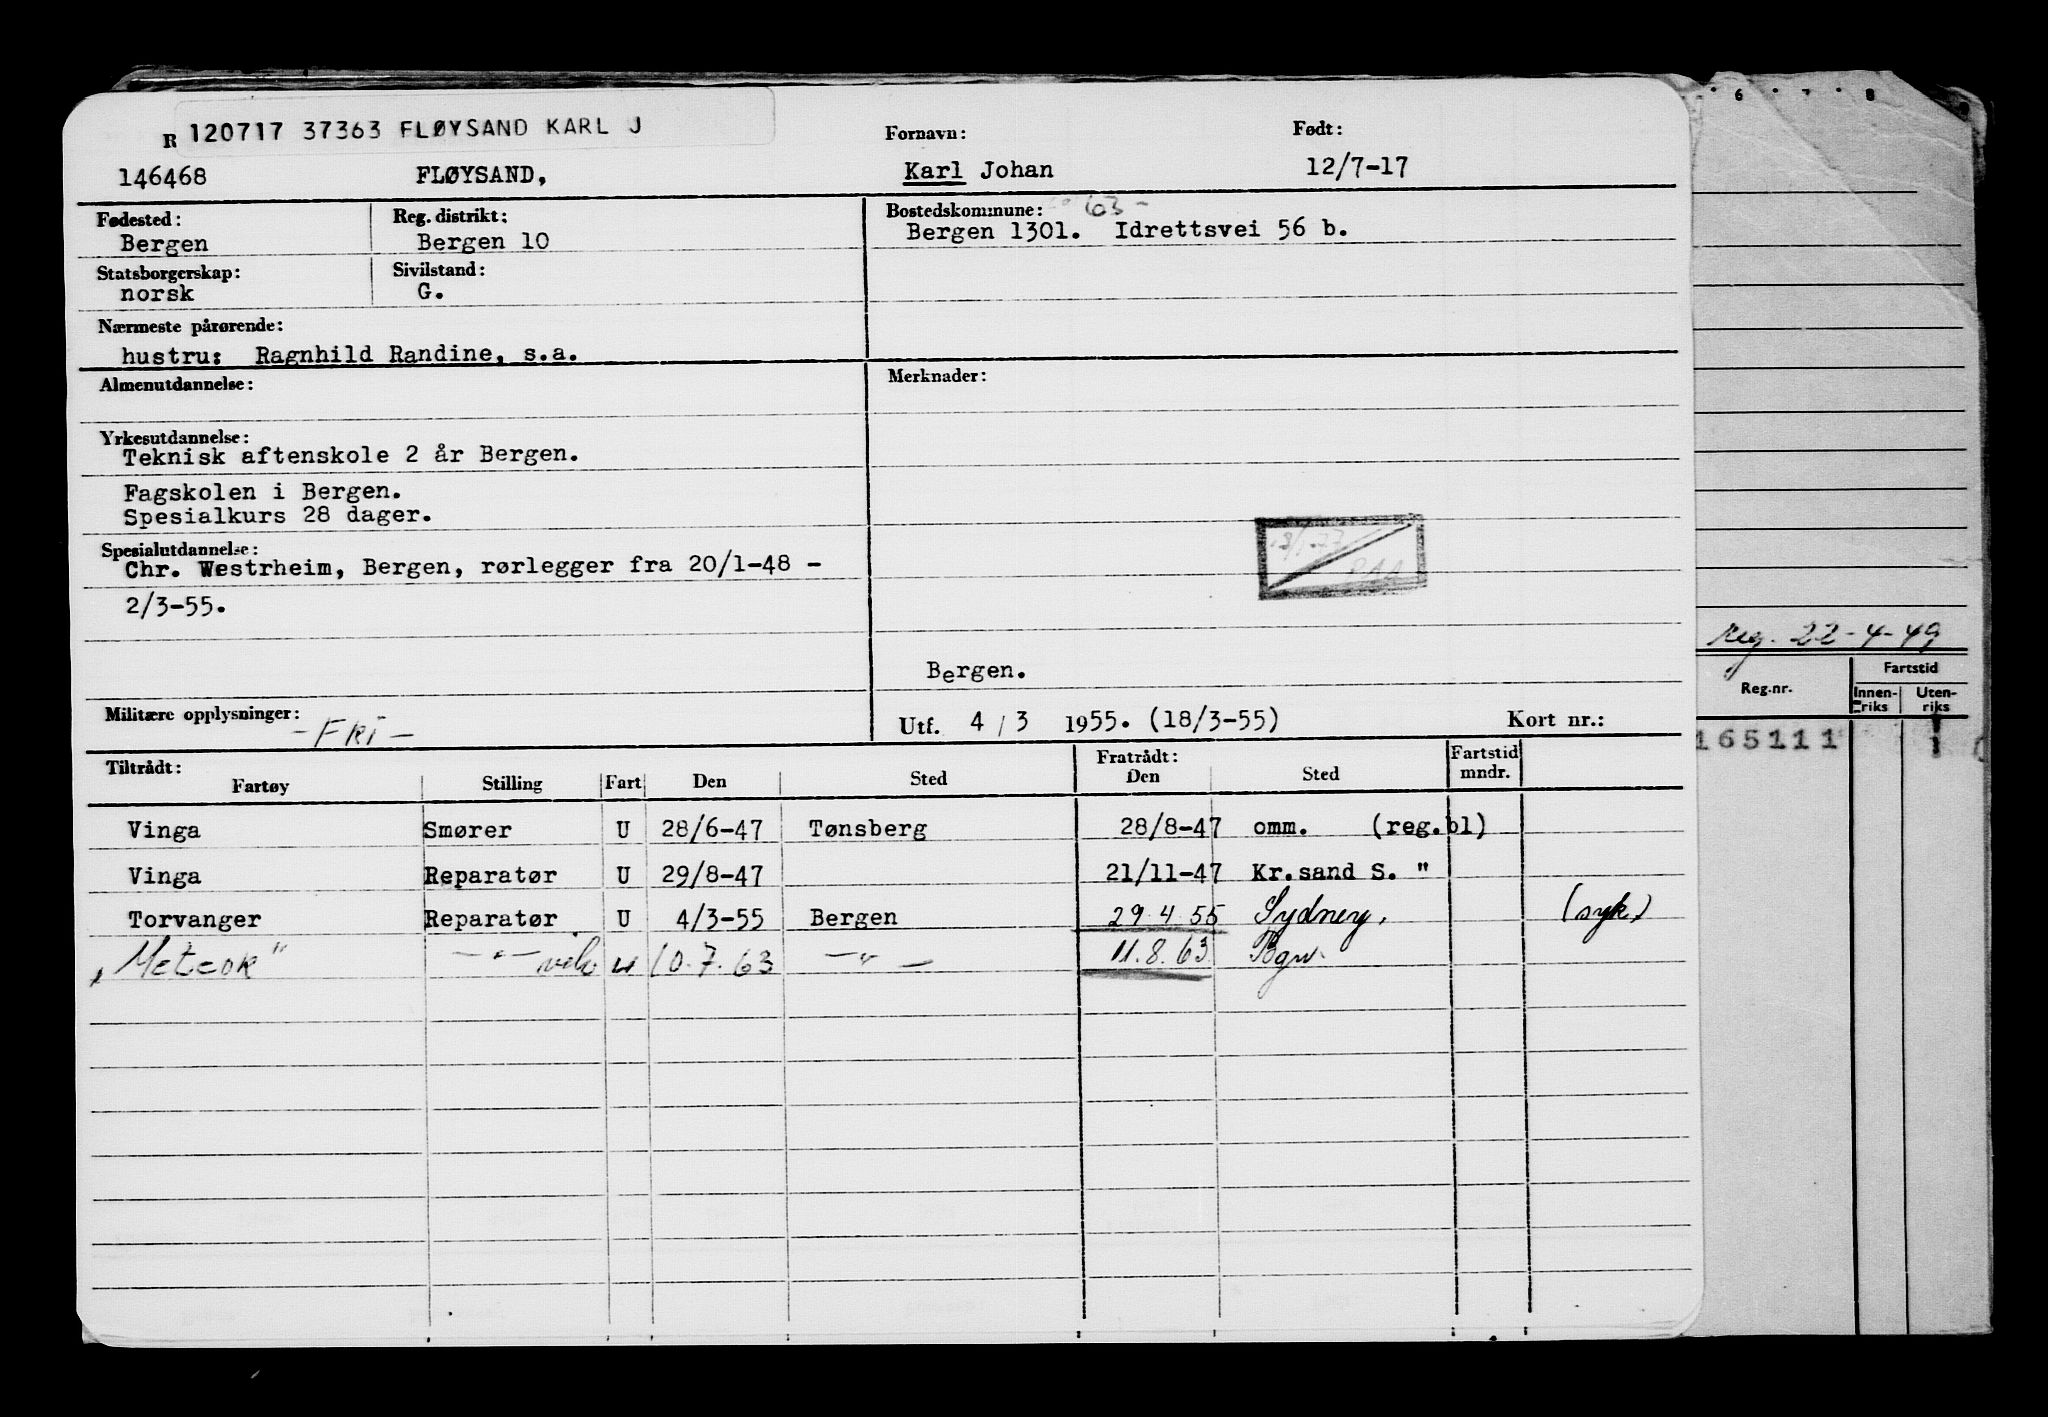 R 120717 37363 FLØYSAND KARL J
Fornavn: Født:
146468 FLØYSAND, Karl Johan 12/7-17
Fødested: Reg. distrikt: Bostedskommune: 63-
Bergen Bergen 10 Bergen 1301. Idrettsvei 56 b.
Statsborgerskap: Sivilstand:
norsk G.
Nærmeste pårørende:
hustru: Ragnhild Randine, s.a.
Almenutdannelse: Merknader:
Yrkesutdannelse:
Teknisk aftenskole 2 år Bergen.
Fagskolen i Bergen.
Spesialkurs 28 dager.
Spesialutdannelse:
Chr. Westrheim, Bergen, rørlegger fra 20/1-48 -
2/3-55.
Bergen.
Militære opplysninger: -Fri- Utf. 4/3 1955. (18/3-55) Kort nr.:
Tiltrådt: Fratrådt: Fartstid
Fartøy Stilling Fart Den Sted Den Sted mndr.
Vinga Smører U 28/6-47 Tønsberg 28/8-47 omm. (reg.bl)
Vinga Reparatør U 29/8-47 21/11-47 Kr.sand S. "
Torvanger Reparatør U 4/3-55 Bergen 29.4.55 Sydney. (syk)
"Meteor" -"- u 10.7.63 -"- 11.8.63 Bgn.
6 7 8 9
reg. 22-4-49
Fartstid
Reg.nr. Innen-riks Uten-riks
165111